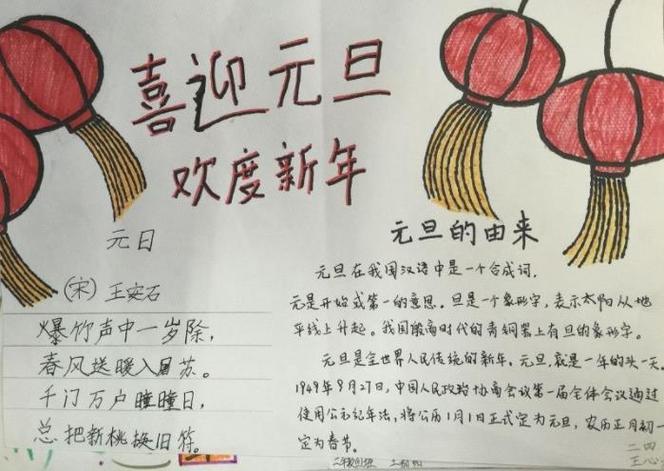 喜迎元旦
欢度新年
元日
(宋) 王安石
爆竹声中一岁除，
春风送暖入屠苏。
千门万户曈曈日，
总把新桃换旧符。
元旦的由来
元旦在我国汉语中是一个合成词，
元是开始或第一的意思。旦是一个象形字，表示太阳从地
平线上升起。我国殷商时代的青铜器上有旦的象形字。
元旦是全世界人民传统的新年，元旦，就是一年的头一天。
1949年9月27日，中国人民政治协商会议第一届全体会议通过
使用公元纪年法，将公历1月1日正式定为元旦，农历正月初一
定为春节。
二四